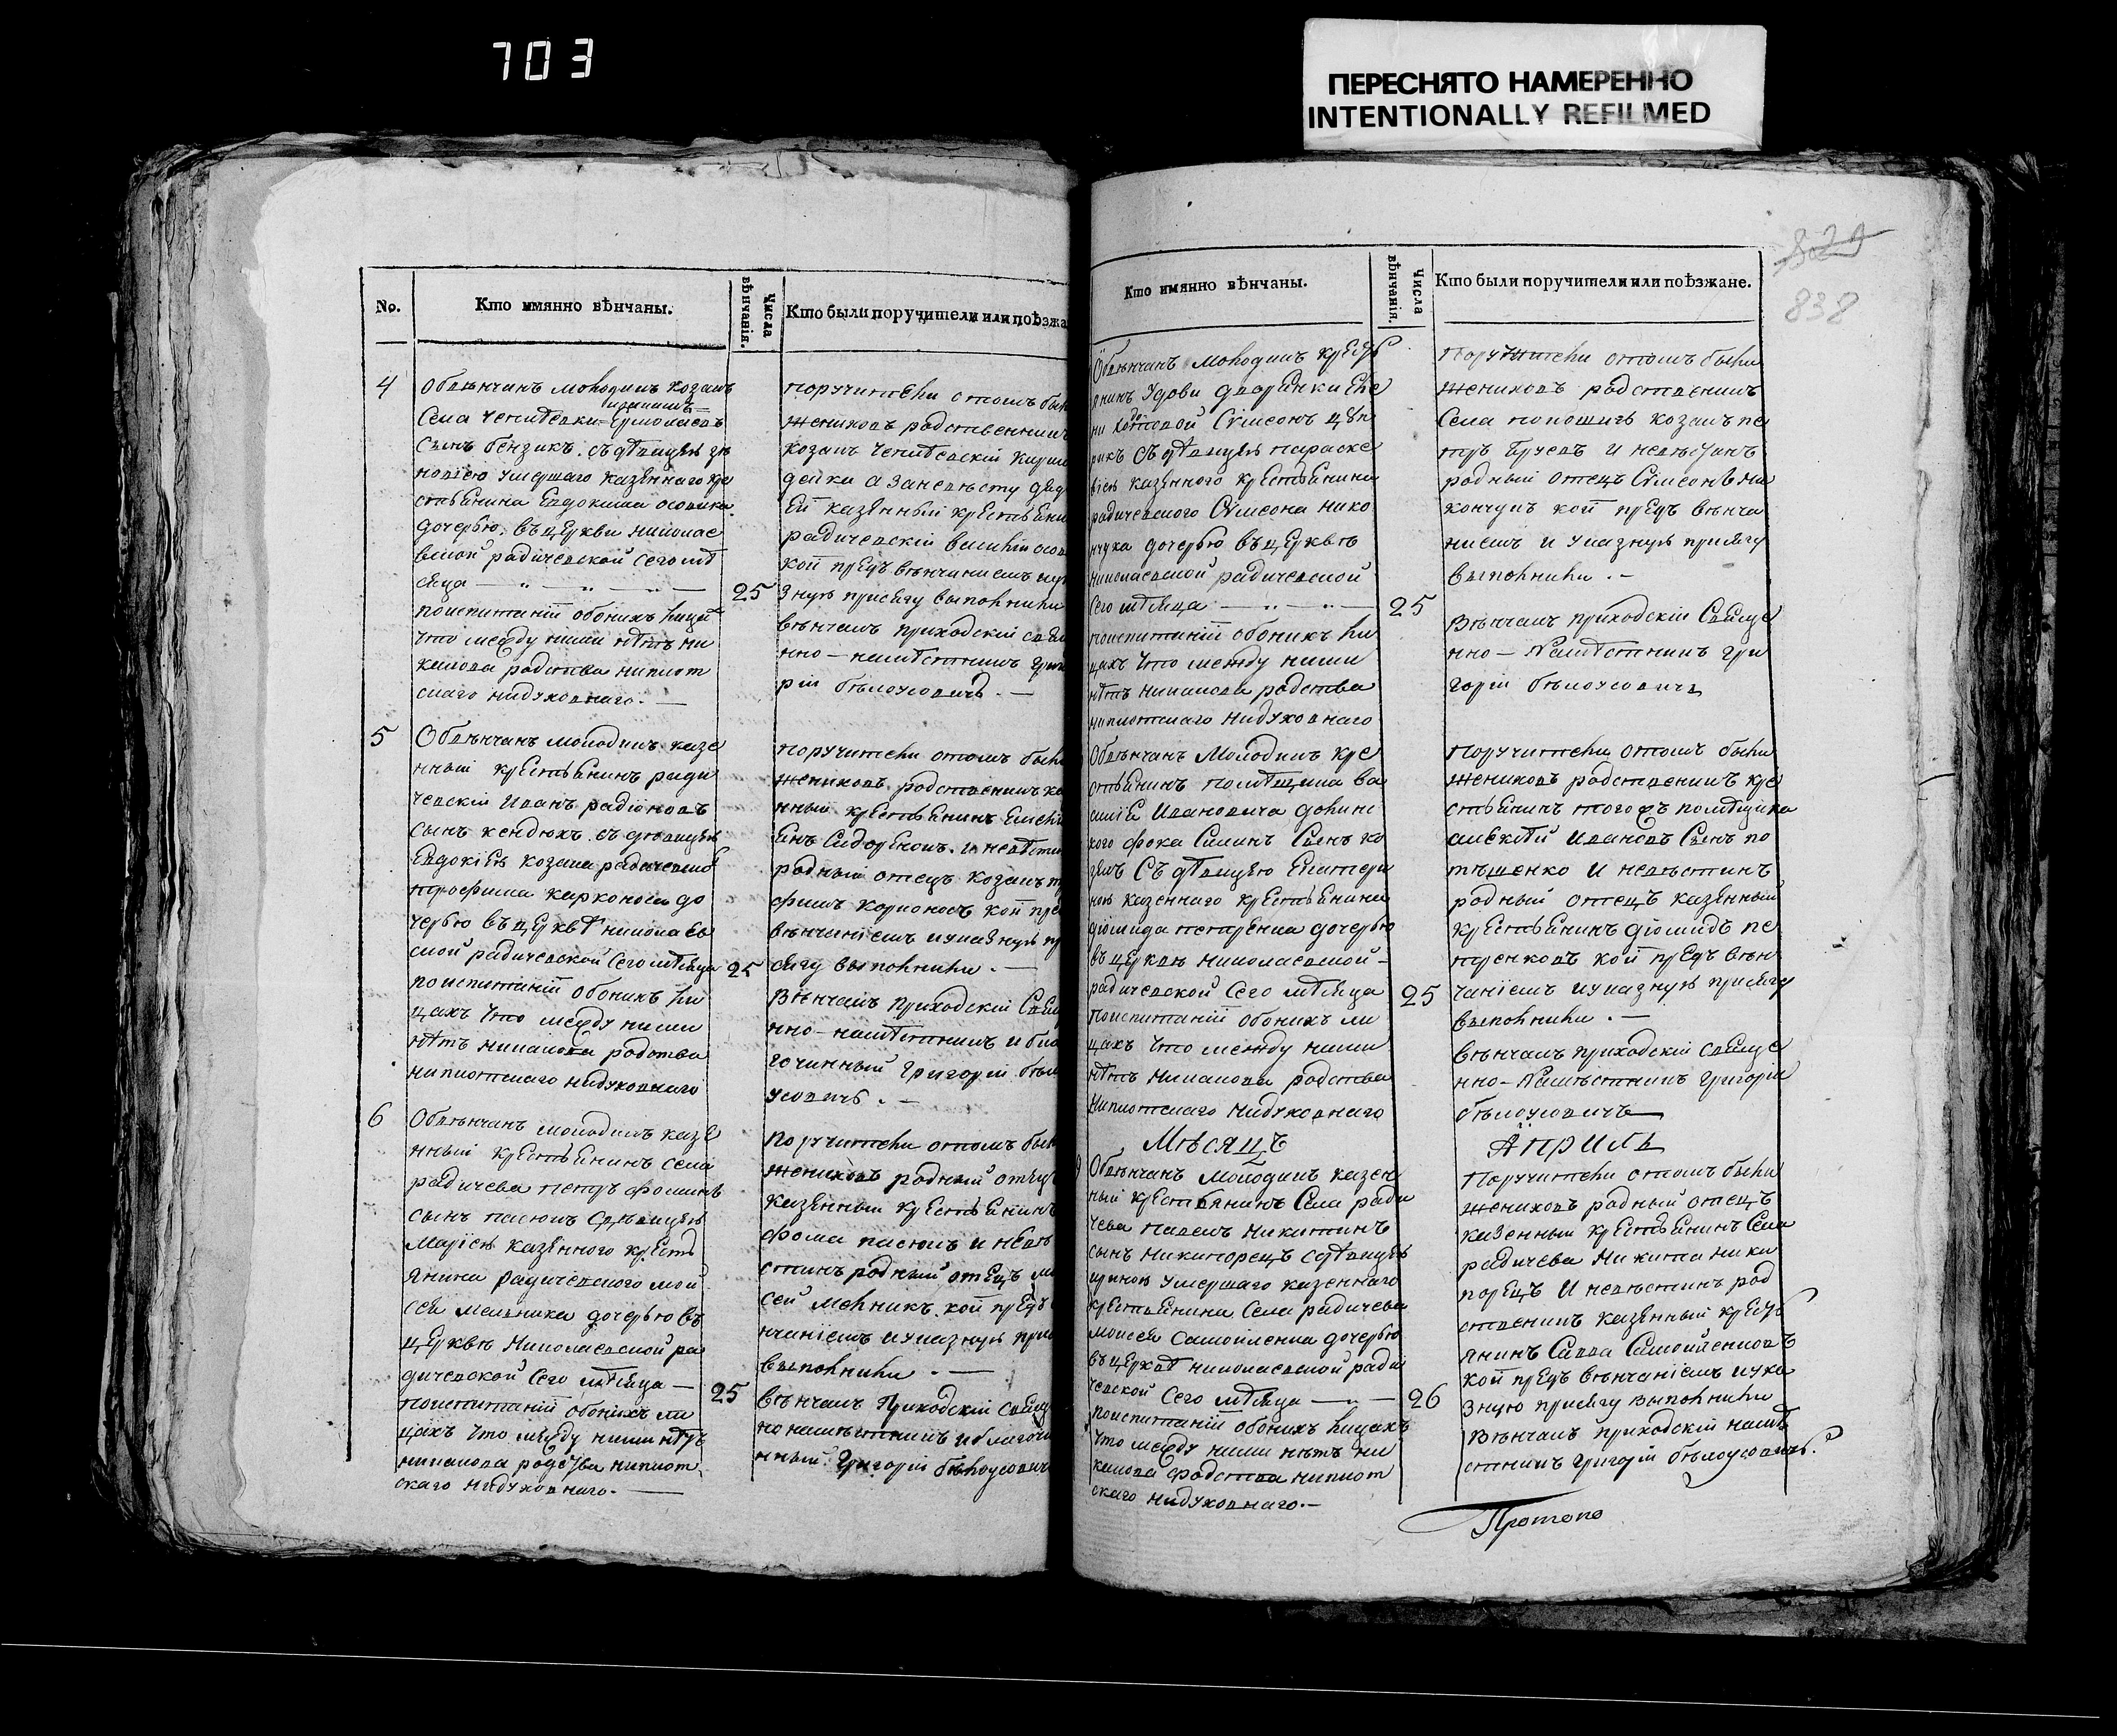 703
ПЕРЕСНЯТО НАМЕРЕННО
INTENTIONALLY REFILMED
829
838
No.
Кто имянно вѣнчаны.
Числа вѣнчанія.
Кто были поручители или поѣзжа
4
Обвѣнчанъ молодикъ козакъ
Села
Ермолаевъ
Сынъ бензикъ. съ дѣвицею зѣ
новіею умершаго казенного кре
стьянина Евдокима осовика
дочерью. въ церкви николае
вской радичевской сего мѣ
сяца — „ — „ —
25
поиспитаніи обоихъ лица
что между ними нѣтъ ни
какова родства ниплот
скаго нидуховнаго. —
поручители отомъ был
жениховъ родственникъ
козакъ
радичевскій василій осов
кои предъ вѣнчаніемъ
зную присягу выполнили
вѣнчалъ приходскій свяще
нно — намѣстникъ григо
рій бѣлоусовичъ. —
5
Обвѣнчанъ молодикъ казе
нный крестьянинъ ради
чевскій Иванъ радіоновъ
сынъ кендюхъ. съ дѣвицею
Евдокіею козака радичевског
трофима карконоса до
черью въ церквѣ николаев
ской радичевской сего мѣсяца
25
поиспитаніи обоихъ ли
цахъ что между ними
нѣтъ никакова родства
ниплотскаго нидуховнаго
поручители отомъ были
жениховъ родственникъ ка
нный крестьянинъ
родный отецъ козакъ тр
фимъ коргоносъ кои пре
вѣнчаніемъ указную пр
сягу выполнили. —
Вѣнчалъ приходскій Свяще
нно — намѣстникъ и бла
гочинный григорій бѣло
усовичъ. —
6
Обвѣнчанъ молодикъ казе
нный крестьянинъ села
радичева петръ фоминъ
сынъ пасюкъ Сдѣвицею
Маріею казенного кресть
янина радичевского мой
сея мельника дочерью въ
церквѣ Николаевской ра
дичевской Сего мѣсяца —
25
поиспитаніи обоихъ ли
цахъ что между ними нѣтъ
никакова родства ниплот
скаго нидуховнаго. —
поручители отомъ был
жениховъ родный отецъ
казенный крестьянинъ
фома пасюкъ и невѣ
стинъ родный отецъ мо
сей мельникъ. кои предъ
нчаніемъ указную прис
выполнили. —
вѣнчалъ Приходскій свяще
но намѣстникъ и благочи
нный Григорій бѣлоусович
Кто имянно вѣнчаны.
Числа вѣнчанія.
Кто были поручители или поѣзжане.
Обвѣнчанъ молодикъ кресть
янинъ удови дворянки Еле
ни Сѵмеонъ
рикъ Съ дѣвицею параске
віею казенного крестьянина
радичевского Сѵмеона нико
нчука дочерью въ церквѣ
николаевской радичевской
Сего мѣсяца — „ — „ —
25
поиспитаніи обоихъ ли
цахъ что между ними
нѣтъ никакова родства
ниплотскаго нидуховнаго
Поручители отомъ были
жениховъ родственникъ
Села козакъ пе
тръ и невѣстинъ
родный отецъ Сѵмеонъ ни
кончукъ кои предъ вѣнча
ніемъ и указную присягу
выполнили. —
Вѣнчалъ приходскій Свяще
нно — Намѣстникъ гри
горій бѣлоусовичъ
Обвѣнчанъ Молодикъ кре
стьянинъ помѣщика ва
силіа Ивановича долин
кого фока Силинъ Сынъ ко
зелъ Съ дѣвицею Екатери
ною казенного крестьянина
діомида петренка дочерью
въ церквѣ николаевской —
радичевской Сего мѣсяца
25
Поиспитаніи обоихъ ли
цахъ что между ними
нѣтъ никакова родства
Ниплотскаго нидуховнаго
Поручители отомъ были
жениховъ родственникъ кре
стьянинъ тогожъ помѣщика
алексѣй Ивановъ Сынъ по
тѣшенко и невѣстинъ
родный отецъ казенный
крестьянинъ діомидъ пе
тренковъ кои предъ вѣн
чаніемъ указную присягу
выполнили. —
вѣнчалъ приходскій свяще
нно — Намѣстникъ григорій
бѣлоусовичъ
Мѣсяцъ
Априль
Обвѣнчанъ молодикъ казен
ный крестьянинъ Села ради
чева павелъ никитинъ
сынъ никипорецъ сдѣвицею
ириною умершаго казеннаго
крестьянина Села радичева
моисея Самойленка дочерью
въ церквѣ николаевской ради
чевской Сего мѣсяца — „ —
26
поиспитаніи обоихъ лицахъ
что между ними нѣтъ ни
какова родства ниплот
скаго нидуховнаго. —
Поручители отомъ были
жениховъ родный отецъ
казенный крестьянинъ Села
радичева Никита ники
порецъ И невѣстинъ род
ственникъ казенный кресть
янинъ Савва Самойленковъ
кои предъ вѣнчаніемъ ука
зную присягу выполнили
Вѣнчалъ приходскій намѣ
стникъ григорій бѣлоусовичъ.
Протопо